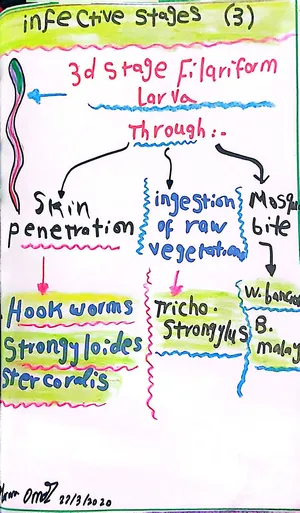 infective stages (3)
3d stage Filariform
Larva
Through:-
Skin
penetration
ingestion
of raw
vegetation
bite
Hook worms
Strongyloides
Stercoralis
Tricho.
Strongylus
B.
22/3/2020